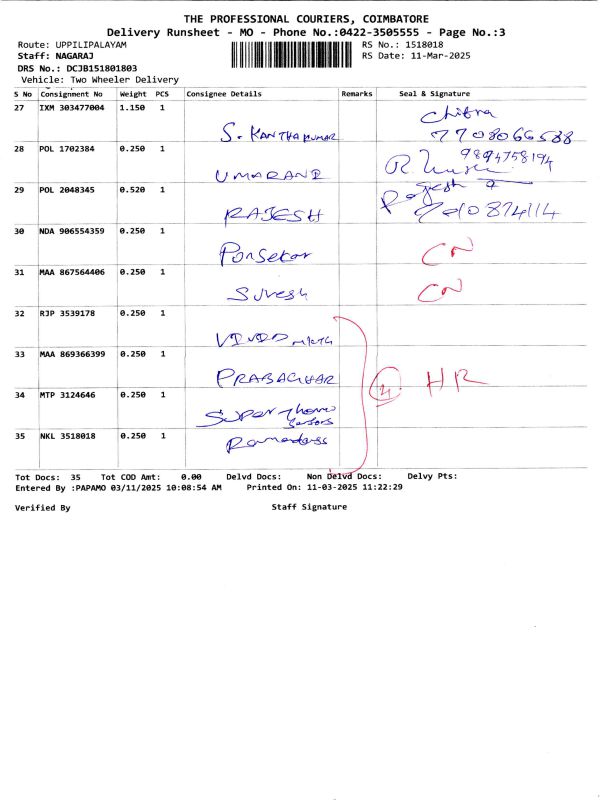 THE PROFESSIONAL COURIERS, COIMBATORE
Delivery Runsheet - MO - Phone No.:0422-3505555 - Page No.:3
Route: UPPILIPALAYAM RS No.: 1518018
Staff: NAGARAJ RS Date: 11-Mar-2025
DRS No.: DCJB151801803
Vehicle: Two Wheeler Delivery
S No Consignment No Weight PCS Consignee Details Remarks Seal & Signature
27 IXM 303477004 1.150 1 S. KANTHAKUMAR Chitra
7708066588
28 POL 1702384 0.250 1 UMARANI 9894758194
29 POL 2048345 0.520 1 RAJESH Rajesh
30 NDA 906554359 0.250 1 Ponsekar CN
31 MAA 867564406 0.250 1 Suresh CN
32 RJP 3539178 0.250 1
33 MAA 869366399 0.250 1 PRABAGHAR HR
34 MTP 3124646 0.250 1 Super
35 NKL 3518018 0.250 1 Ramadass
Tot Docs: 35 Tot COD Amt: 0.00 Delvd Docs: Non Delvd Docs: Delvy Pts:
Entered By :PAPAMO 03/11/2025 10:08:54 AM Printed On: 11-03-2025 11:22:29
Verified By Staff Signature